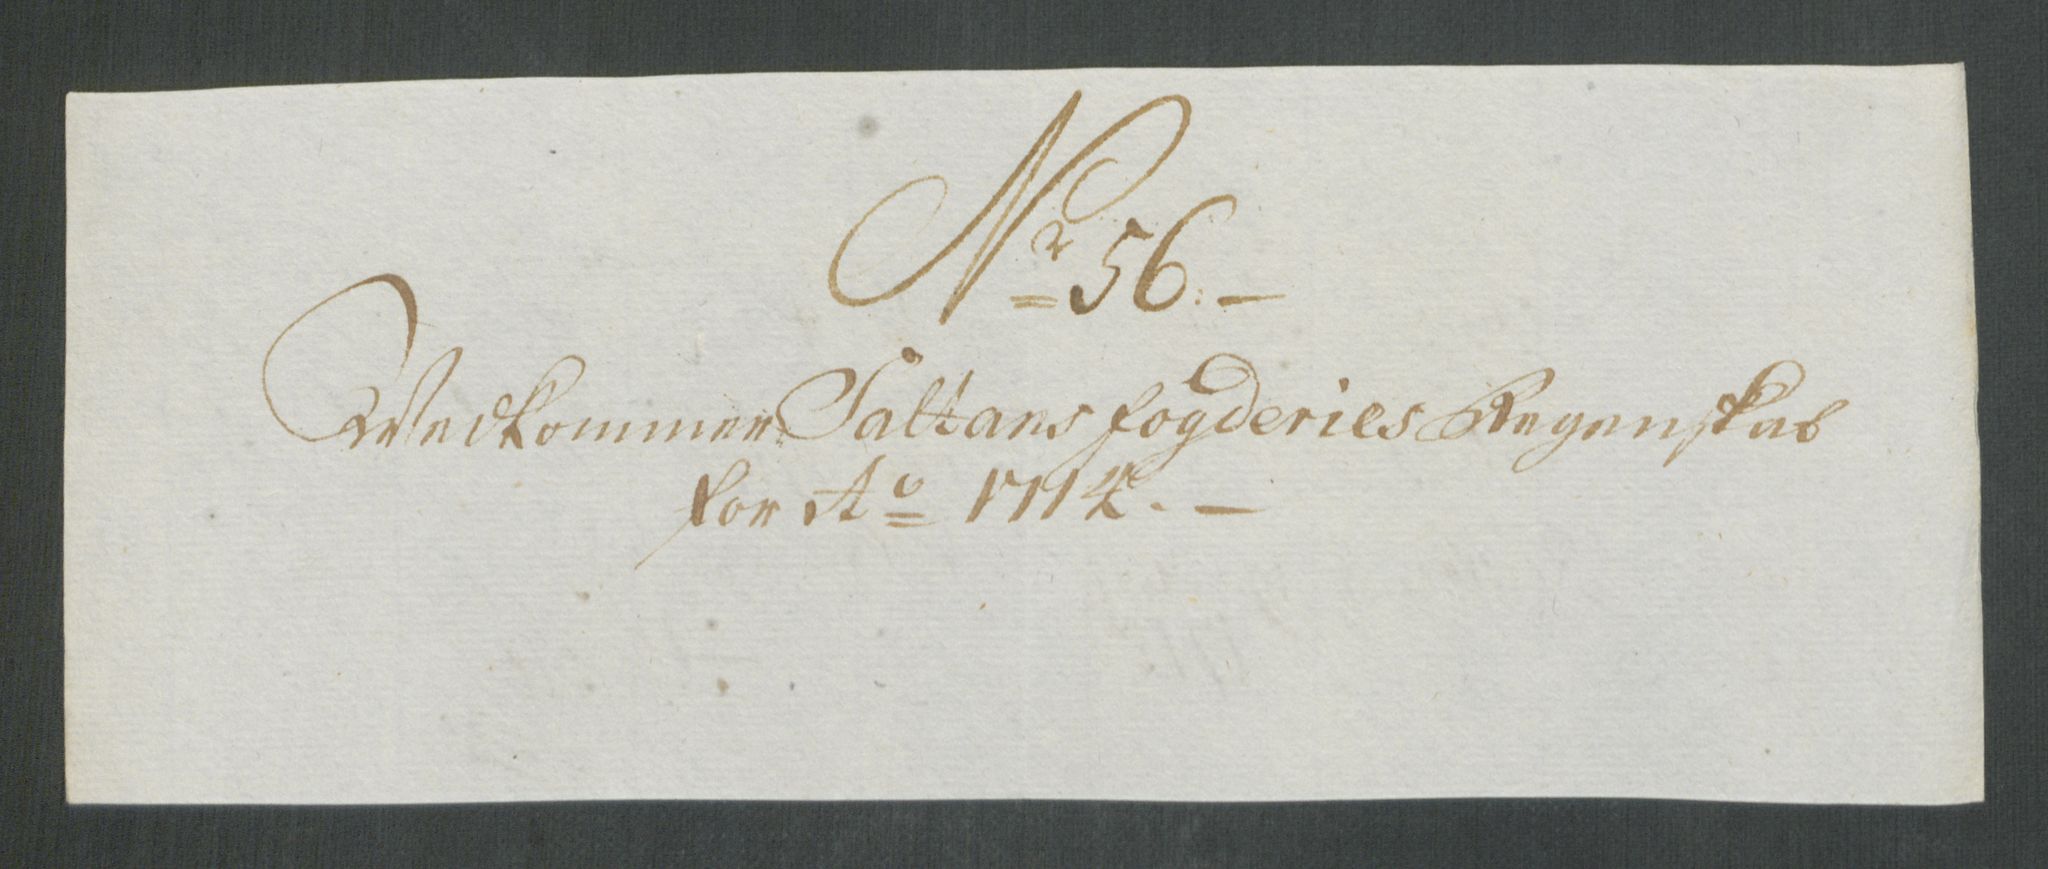 Nr 56. —
Vedkommer Saltens fogderies Regenskab
for Ao 1714. —